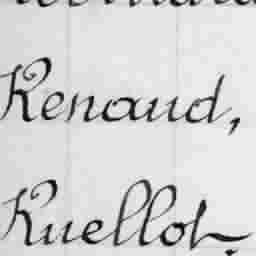 Renaud,
Ruellot.